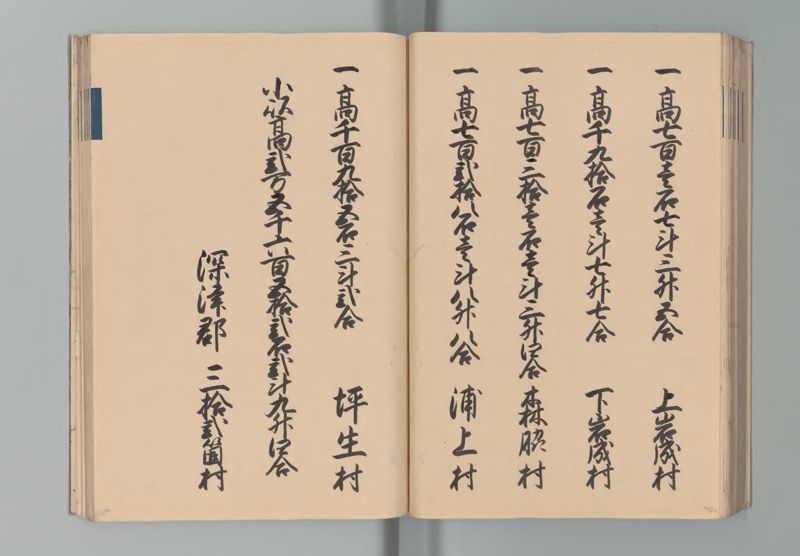 一 高七百壱石七斗三升五合 上岩成村
一 高千九拾石壱斗七升七合 下岩成村
一 高七百三拾壱石壱斗三升四合 森脇村
一 高七百弐拾八石壱斗八升八合 浦上村
一 高千百九拾五石三斗弐合 坪生村
小以高弐万五千六百五拾弐石弐斗九升四合
深津郡 三拾弐箇村